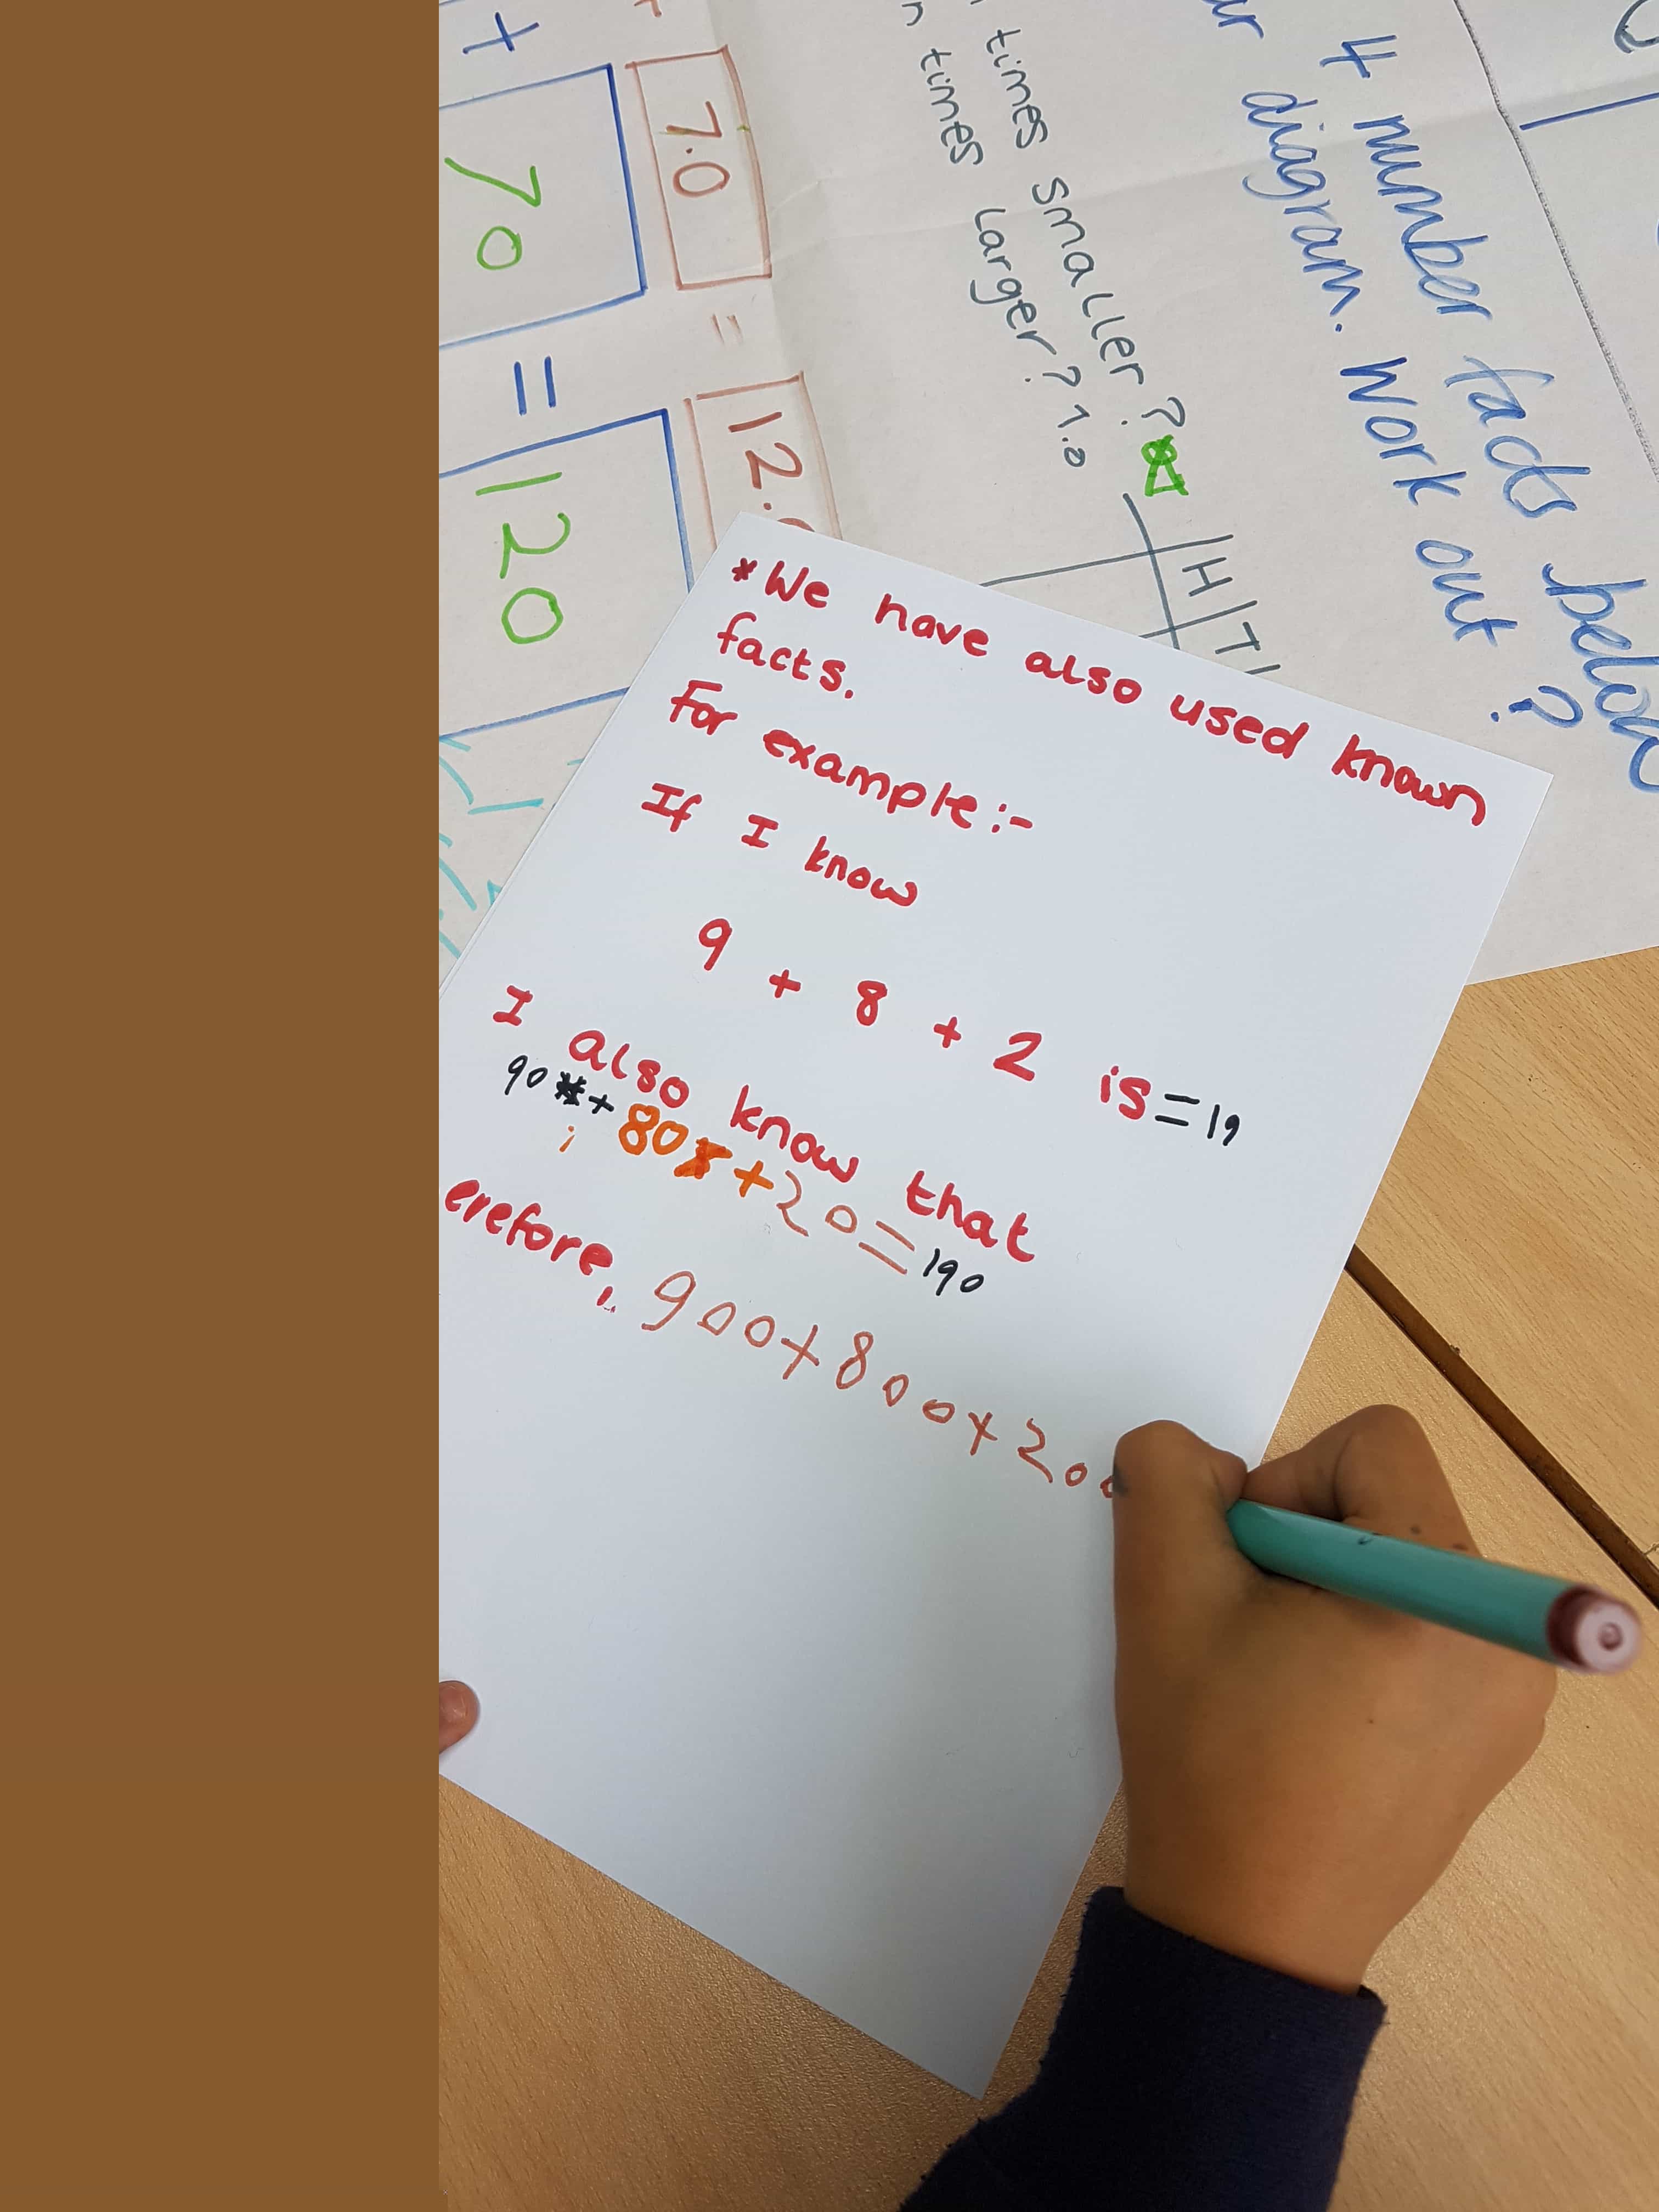 + 70 = 120
7.0 = 12.
times smaller?
times Larger? 1.0
H T
4 number facts below
diagram. Work out ?
*We have also used known
facts.
For example:-
If I know
9 + 8 + 2 is =19
I also know that
90 + 80 + 20=190
erefore, 900+800+200